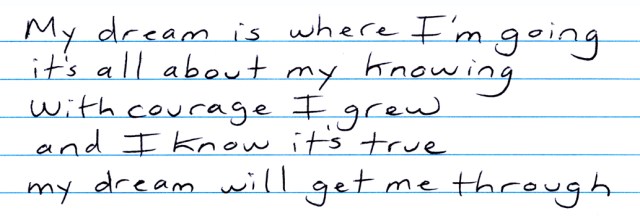 My dream is where I'm going
it's all about my knowing
with courage I grew
and I know it's true
my dream will get me through